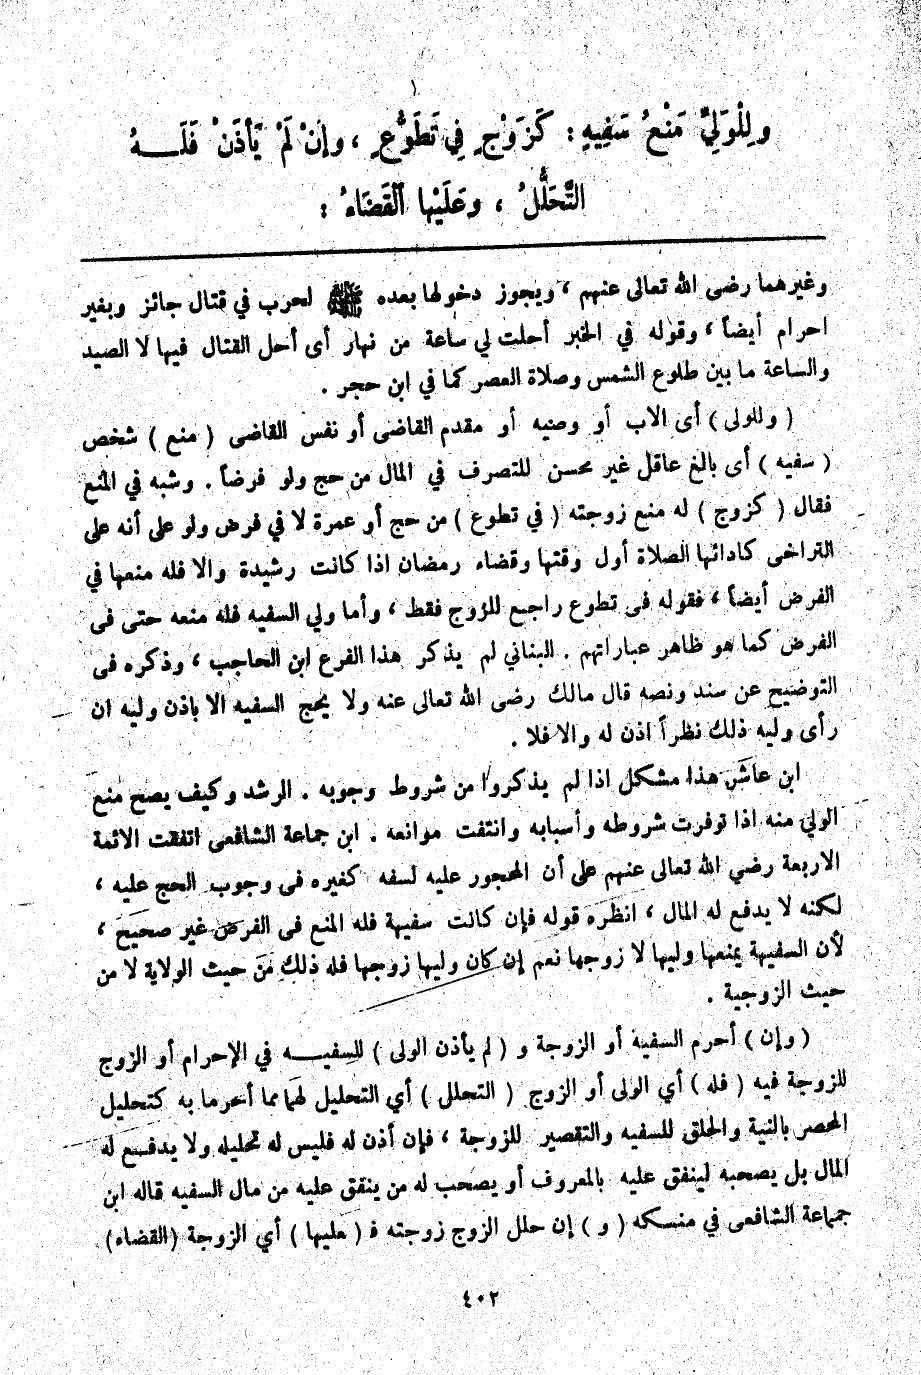 وِلِلْوَلِيِّ مَنْعُ سَفِيهٍ : كَزَوْجٍ فِي تَطَوُّعٍ ، وإنْ لَمْ يَأْذَنْ فَلَـــهُ
التَّحَلُّلُ ، وَعَلَيْها الْقَضَاءُ :
وغيرهما رضى الله تعالى عنهم ، ويجوز دخولها بعده ﷺ لحرب في قتال جائز وبغير
احرام أيضاً ، وقوله في الخبر أحلت لي ساعة من نهار أى أحل القتال فيها لا الصيد
والساعة ما بين طلوع الشمس وصلاة العصر كما في ابن حجر .
( وللولى ) أى الاب أو وصيه أو مقدم القاضى أو نفس القاضى ( منع ) شخص
( سفيه ) أى بالغ عاقل غير محسن للتصرف في المال من حج ولو فرضاً . وشبه في المنع
فقال ( كزوج ) له منع زوجته ( في تطوع ) من حج أو عمرة لا في فرض ولو على أنه على
التراخى كادائها الصلاة أول وقتها وقضاء رمضان اذا كانت رشيدة والا فله منعها في
الفرض أيضاً ، فقوله فى تطوع راجع للزوج فقط ، وأما ولي السفيه فله منعه حتى فى
الفرض كما هو ظاهر عباراتهم . البناني لم يذكر هذا الفرع ابن الحاجب ، وذكره فى
التوضيح عن سند ونصه قال مالك رضى الله تعالى عنه ولا يحج السفيه الا باذن وليه ان
رأى وليه ذلك نظراً اذن له والا فلا .
ابن عاشر هذا مشكل اذا لم يذكروا من شروط وجوبه . الرشد وكيف يصح منع
الولي منه اذا توفرت شروطه وأسبابه وانتفت موانعه . ابن جماعة الشافعى اتفقت الائمة
الاربعة رضي الله تعالى عنهم على أن المحجور عليه لسفه كغيره فى وجوب الحج عليه ،
لكنه لا يدفع له المال ، انظره قوله فإن كانت سفيهة فله المنع فى الفرض غير صحيح ،
لأن السفيهة يمنعها وليها لا زوجها نعم إن كان وليها زوجها فله ذلك من حيث الولاية لا من
حيث الزوجية .
( وإن ) أحرم السفيه أو الزوجة و ( لم يأذن الولى ) للسفيـــه في الإحرام أو الزوج
للزوجة فيه ( فله ) أي الولى أو الزوج ( التحلل ) أي التحليل لهما مما أحرما به كتحليل
المحصر بالنية والحلق للسفيه والتقصير للزوجة ، فإن أذن له فليس له تحليله ولا يدفـع له
المال بل يصحبه لينفق عليه بالمعروف أو يصحب له من ينفق عليه من مال السفيه قاله ابن
جماعة الشافعى في منسكه ( و ) إن حلل الزوج زوجته فـ ( عليها ) أي الزوجة ( القضاء )
٤٠٢